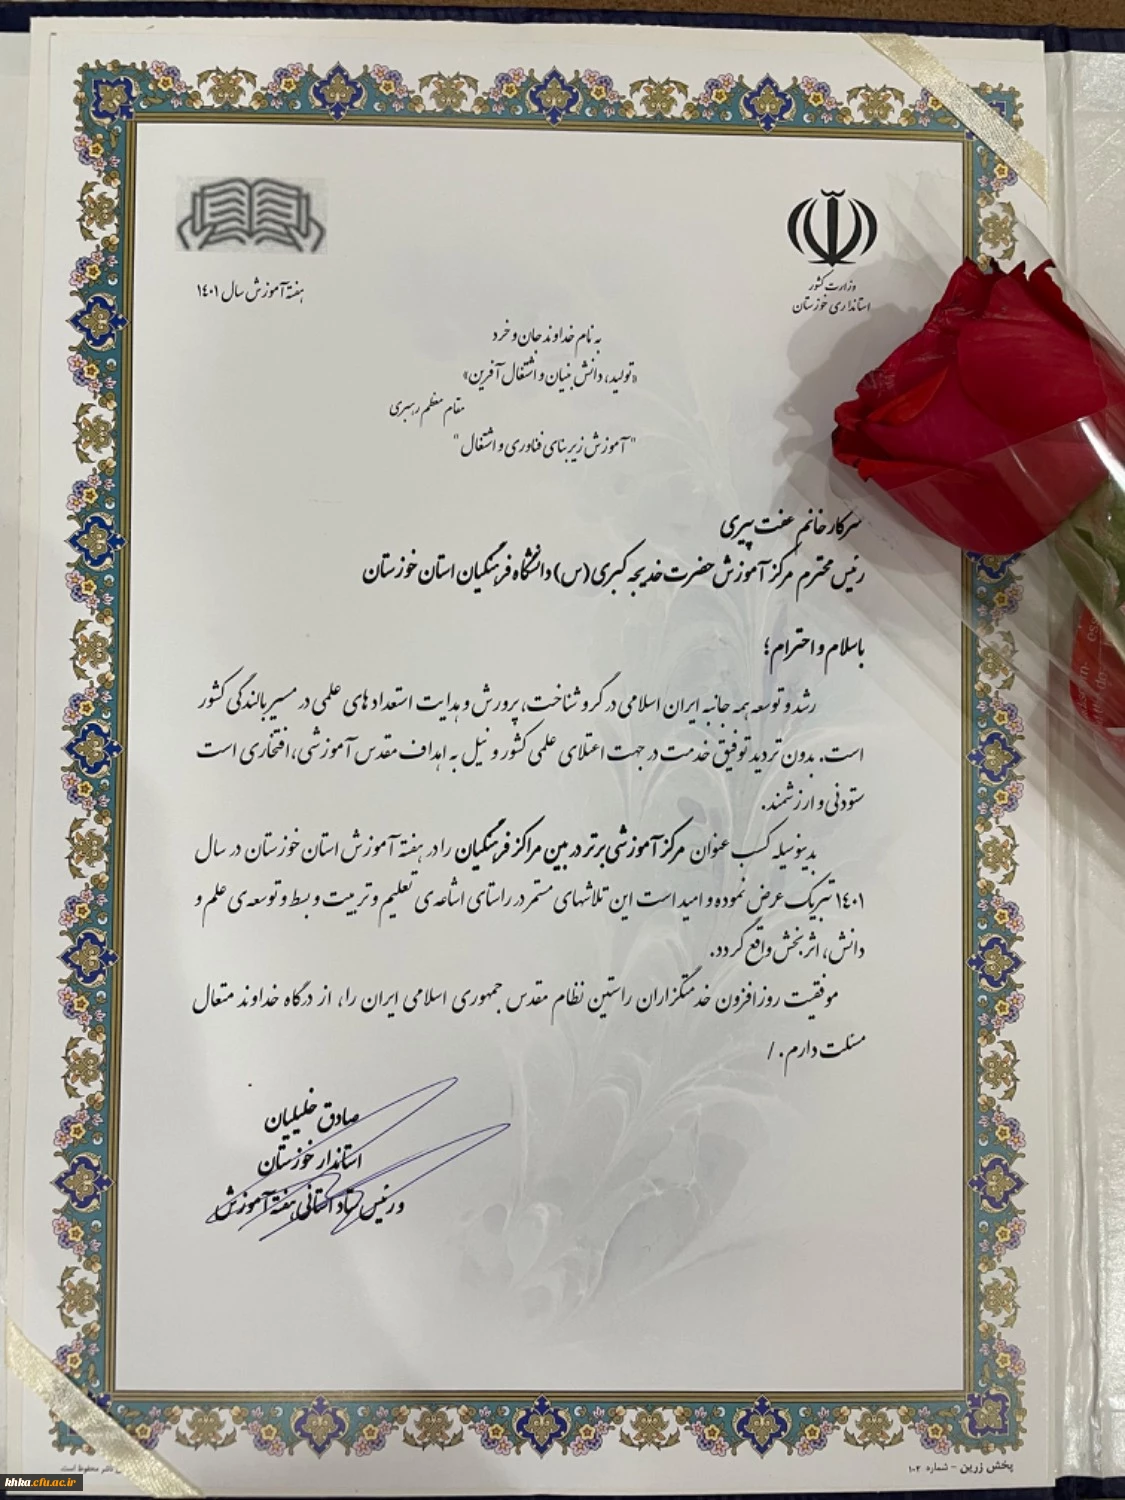 وزارت کشور
استانداری خوزستان
هفته آموزش سال ۱۴۰۱
به نام خداوند جان و خرد
«تولید، دانش بنیان و اشتغال آفرین»
مقام معظم رهبری
"آموزش زیربنای فناوری و اشتغال"
سرکار خانم عفت پیری
رئیس محترم مرکز آموزش حضرت خدیجه کبری (س) دانشگاه فرهنگیان استان خوزستان
باسلام و احترام؛
رشد و توسعه همه جانبه ایران اسلامی در گرو شناخت، پرورش و هدایت استعداد های علمی در مسیر بالندگی کشور
است. بدون تردید توفیق خدمت در جهت اعتلای علمی کشور و نیل به اهداف مقدس آموزشی، افتخاری است
ستودنی و ارزشمند.
بدینوسیله کسب عنوان مرکز آموزشی برتر در بین مراکز فرهنگیان را در هفته آموزش استان خوزستان در سال
۱۴۰۱ تبریک عرض نموده و امید است این تلاشهای مستمر در راستای اشاعه ی تعلیم و تربیت و بسط و توسعه ی علم و
دانش، اثربخش واقع گردد.
موفقیت روزافزون خدمتگزاران راستین نظام مقدس جمهوری اسلامی ایران را، از درگاه خداوند متعال
مسئلت دارم. /
صادق خلیلیان
استاندار خوزستان
و رئیس ستاد استانی هفته آموزش
پخش زرین - شماره ۱۰۲
محفوظ است.
khka.cfu.ac.ir